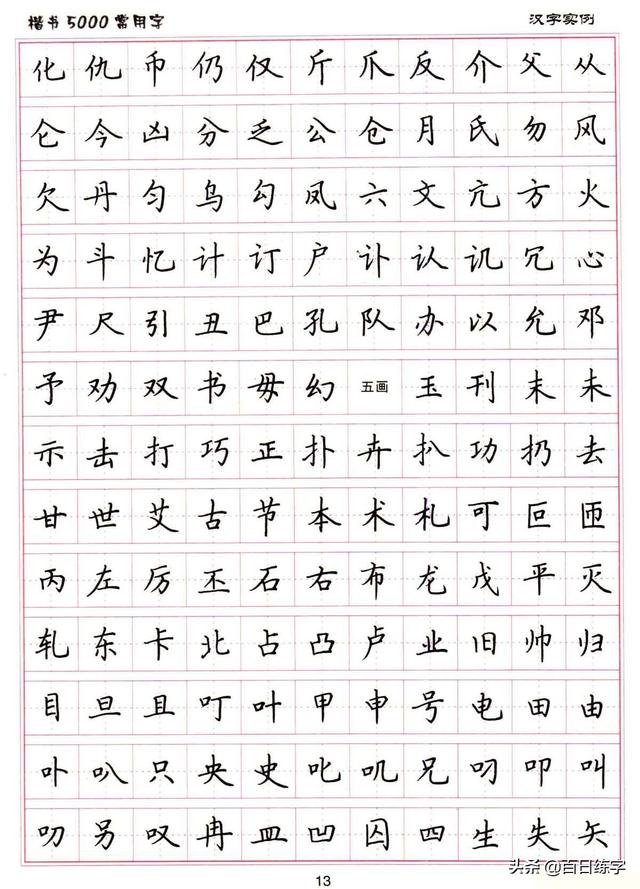 楷书5000常用字 汉字实例
化仇币仍仅斤爪反介父从
仑今凶分乏公仓月氏勿风
欠丹匀乌勾凤六文亢方火
为斗忆计订户讣认讥冗心
尹尺引丑巴孔队办以允邓
予劝双书毋幻五画玉刊末未
示击打巧正扑卉扒功扔去
甘世艾古节本术札可叵匝
丙左厉丕石右布龙戊平灭
轧东卡北占凸卢业旧帅归
目旦且叮叶甲申号电田由
卟叭只央史叱叽兄叼叩叫
叻另叹冉皿凹囚四生失矢
头条@百日练字
13